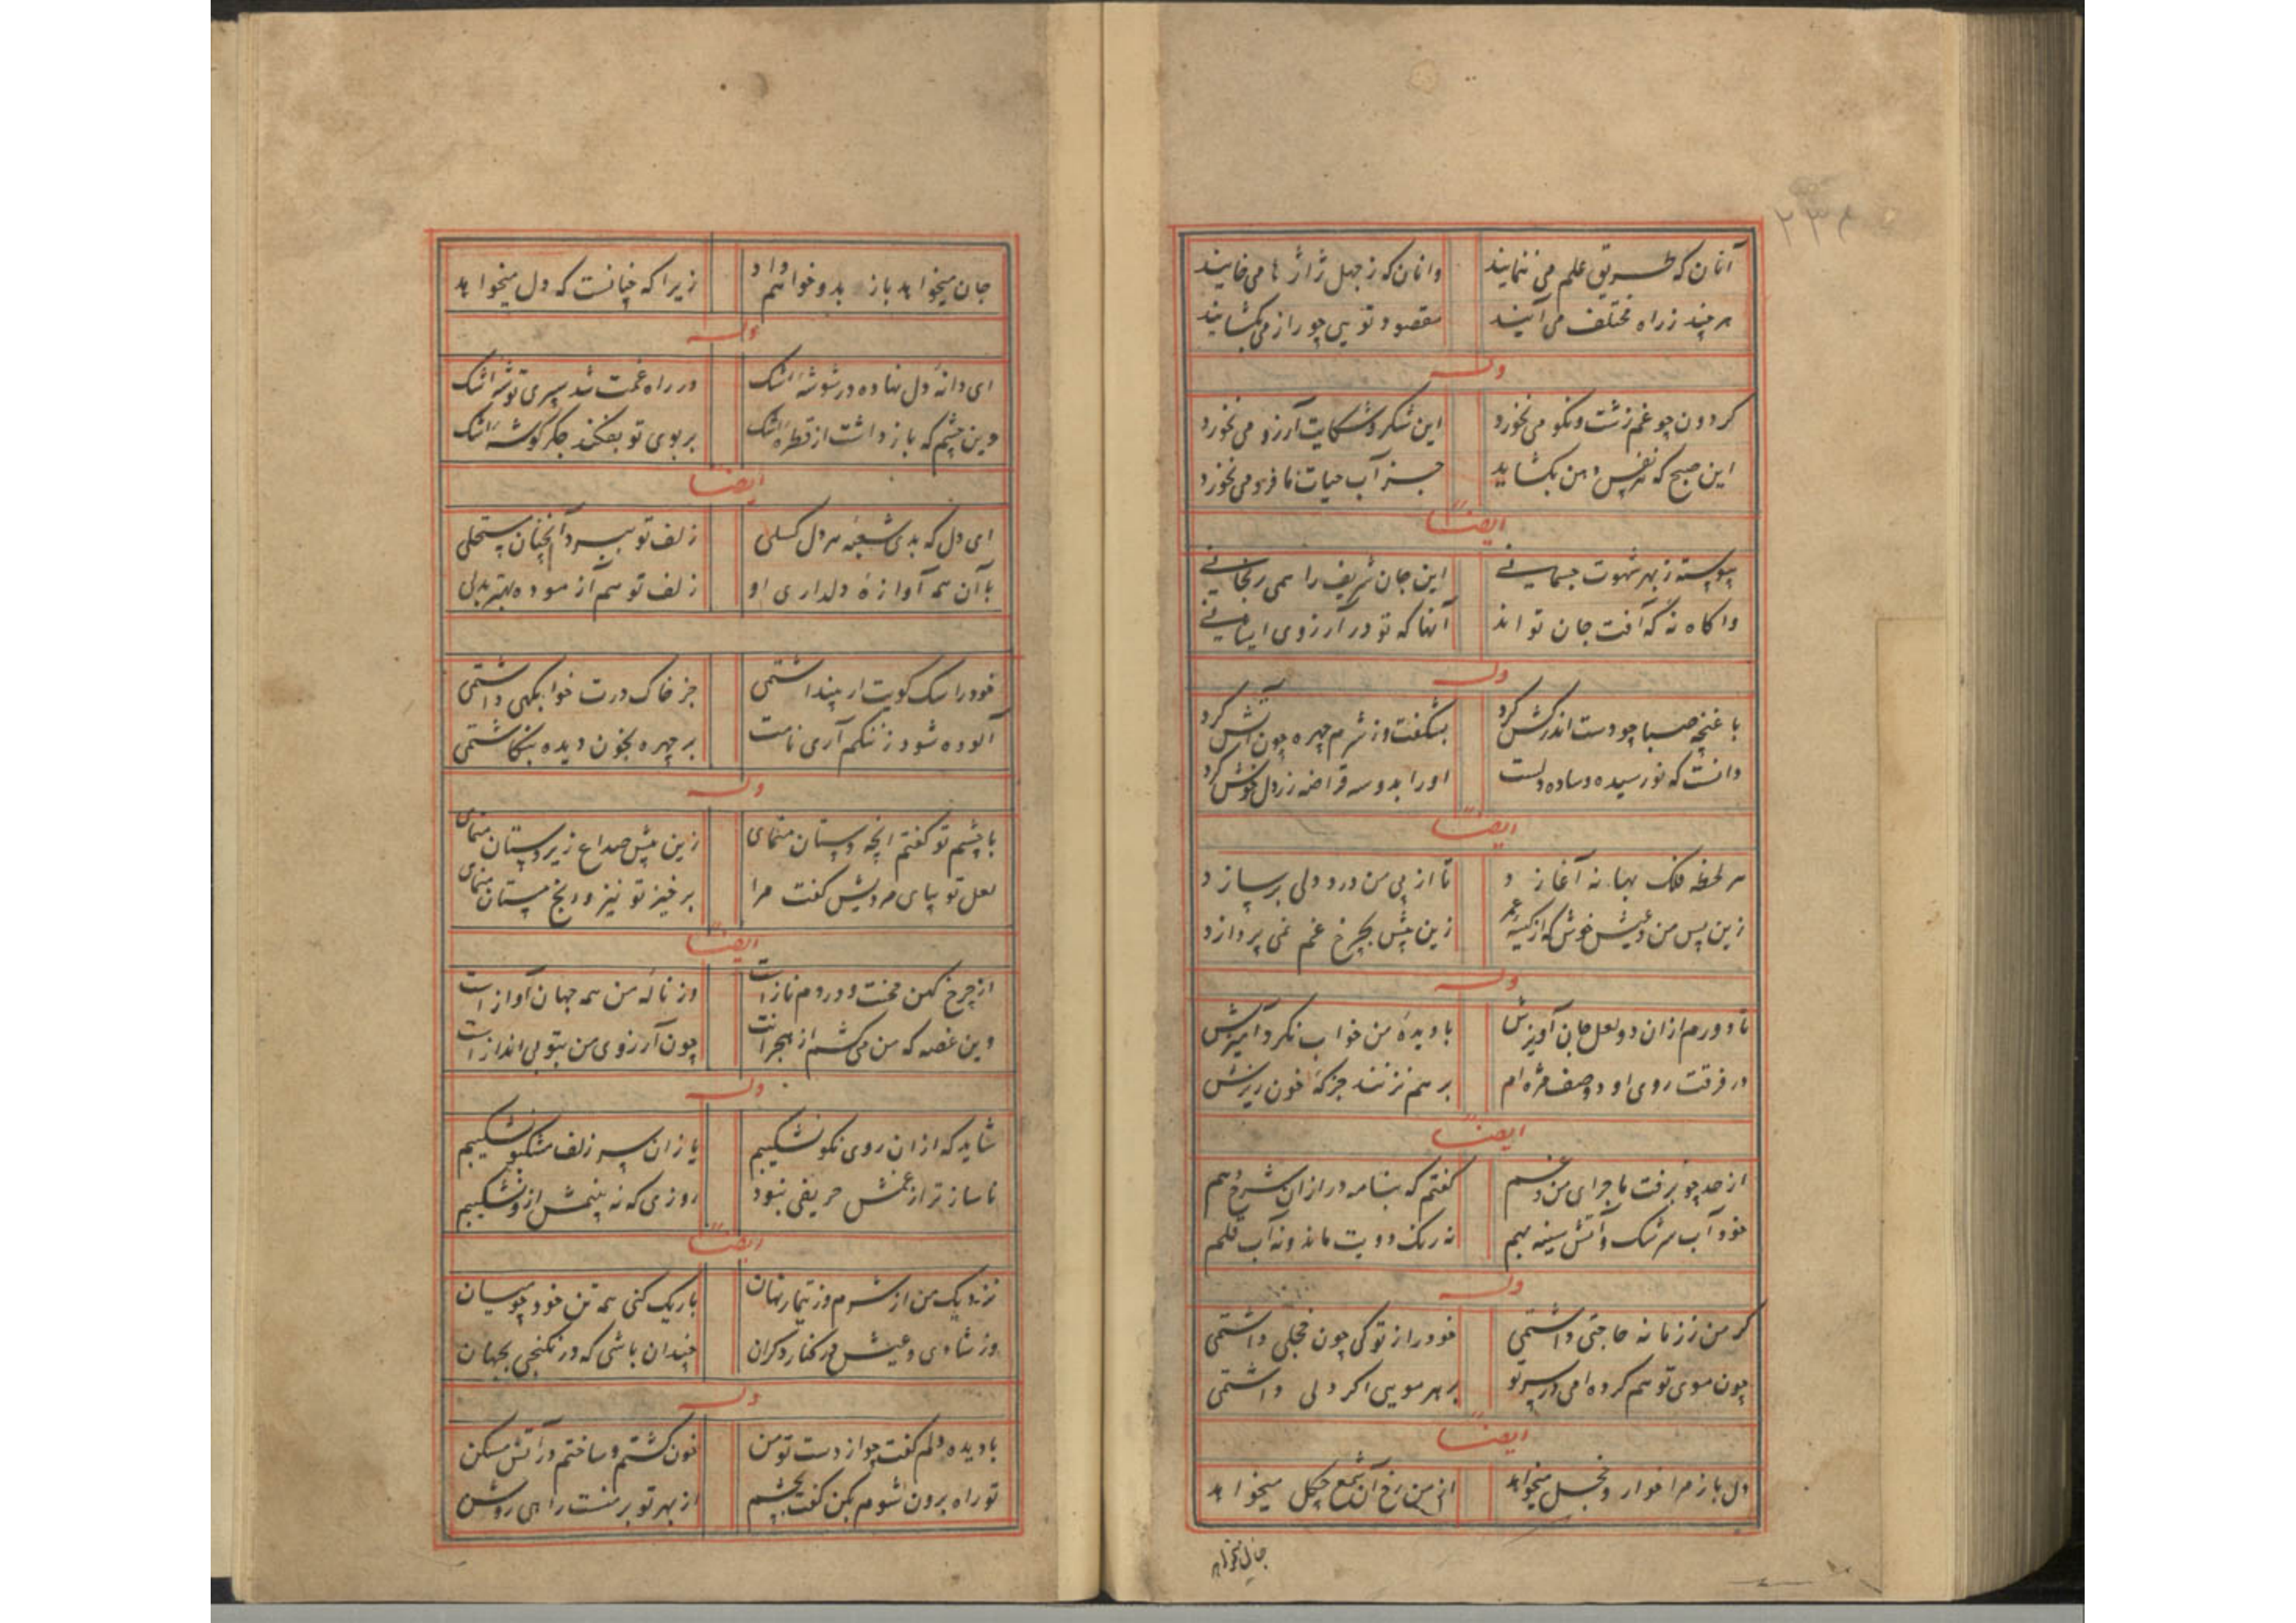 ۲۳۴
آنان که طریق علم می ننمایند وانان که ز جهل ژاژها می خایند
هر چند ز راه مختلف می آیند مقصود تویی چو راز می بگشایند
وله
کردون چو غم زشت ونکو می نخورد این شکر و شکایت آرزو می نخورد
این صبح که نفس دهن بکشاید جز آب حیات ما فرو می نخورد
ایضاً
پیوسته ز بهر شهوت جسمانی این جان شریف را همی رنجانی
واکاه نه که آفت جان تو اند آنها که تو در آرزوی ایشانی
وله
با غنچه صبا چو دست اندر کش کرد بشکفت وز شرم چهره چون آتش کرد
دانست که نورسیده و ساده دلست او را بدو سه قراضه زر دل خوش کرد
ایضاً
هر لحظه فلک بهانه آغازد تا از پی من درد دلی برسازد
زین پس من و عیش خوش که از کیسه عمر زین پیش بچرخ غم نمی پردازد
وله
تا دورم ازان دو لعل جان آویزش با دیدهٔ من خواب نکرد آمیزش
در فرقت روی او دو صف مژه ام بر هم نزنند جز که خون ریزش
ایضاً
از حد چو برفت ماجرای من و غم کفتم که بنامه در ازان شرح دهم
خود آب سرشک و آتش سینه بهم نه رنک دویت ماند و نه آب قلم
وله
کر من ز زمانه حاجتی داشتمی خود را ز تو کی چون خجلی داشتمی
چون موی تو هم کرده امی در سر تو بر هر مویی اکر دلی داشتمی
ایضاً
دل باز مرا خوار و خجل میخواهد از من رخ آن شمع چکل میخواهد
جان میخواهد
جان میخواهد باز بدو خواهم داد زیرا که چنانست که دل میخواهد
وله
ای دانهٔ دل نهاده در شوشهٔ اشک در راه غمت شد سپری توشهٔ اشک
وین چشم که باز داشت از قطره اشک بر بوی تو بفکند جکر کوشهٔ اشک
ایضاً
ای دل که بدی شیفته هر دل کسلی زلف تو ببرد آنچنان مستحلی
با آن همه آوازهٔ دلداری او زلف تو هم آزموده بهتر بدلی
خود را سک کویت ار پنداشتمی جز خاک درت خوابکهی داشتمی
آلوده شود ز ننکم آری نامت بر چهره بخون دیده بنکاشتمی
وله
با چشم تو کفتم انچه دستان منمای زین پیش صداع زیردستان منمای
لعل تو بپای مردیش کفت مرا برخیز تو نیز و رنج مستان منمای
ایضاً
از چرخ کهن محنت و دردم تازه است وز نالهٔ من همه جهان آوازه است
وین غصه که من می کشم از هجرانت چون آرزوی من بتو بی اندازه است
وله
شاید که ازان روی نکو نشکیبم یا زان سر زلف مشکبو نشکیبم
ناسازتر از غمش حریفی نبود روزی که نه بینمش ازو نشکیبم
ایضاً
نزدیک من از شرم وز تیمار نهان باریک کنی همه تن خود چو میان
وز شادی و عیش در کنار دکران چندان باشی که در نکنجی بجهان
وله
با دیده دلم کفت چو از دست تو من خون کشتم و ساختم در آتش مسکن
تو راه برون شوم بکن کفت بچشم از بهر تو بر منست راهی روشن